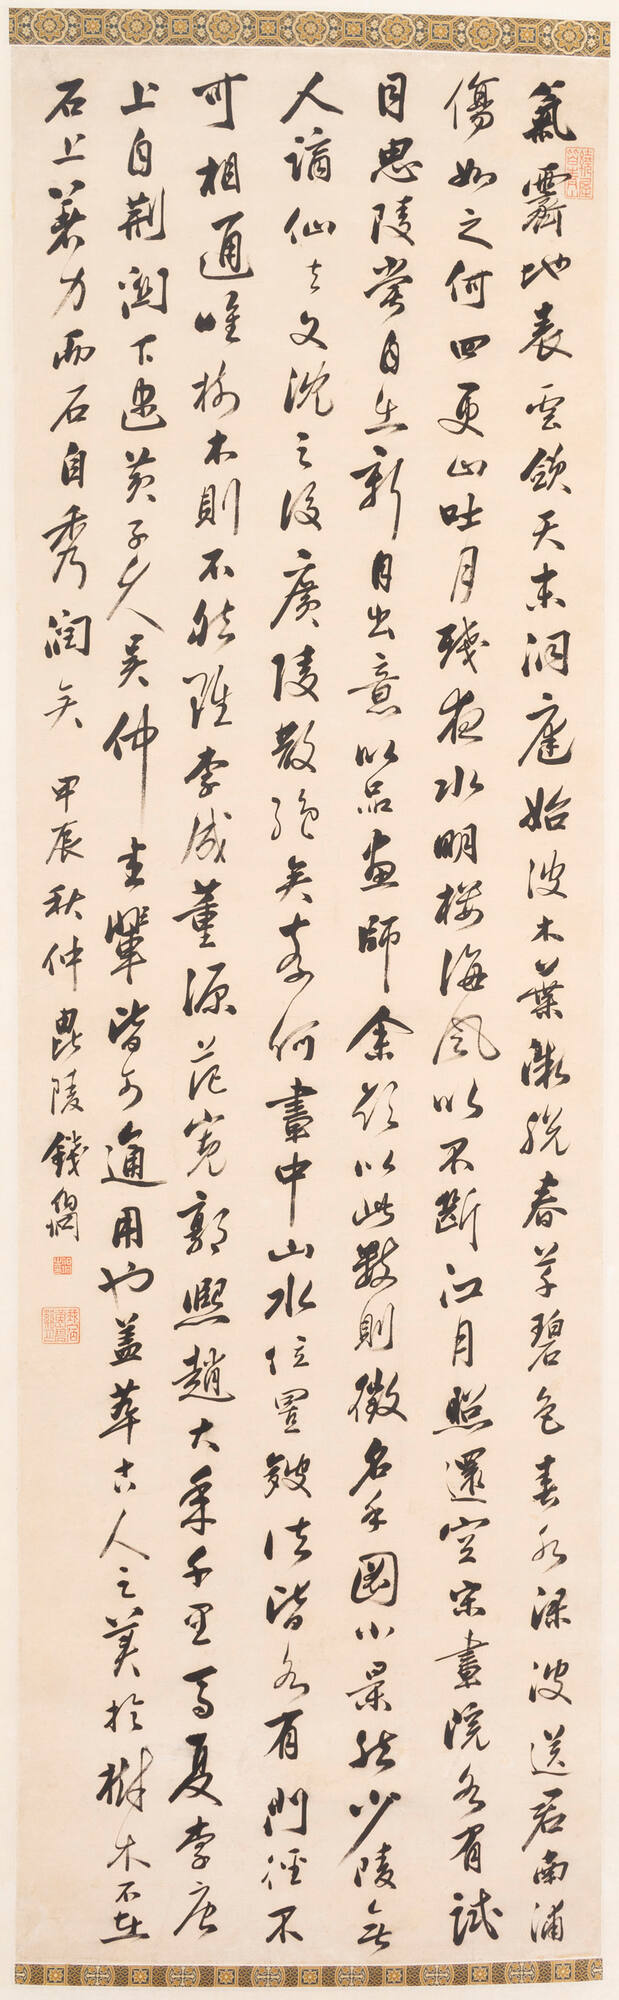 氣霽地表雲斂天末洞庭始波木葉微脫春草碧色春水淥波送君南浦
傷如之何四更山吐月殘夜水明樓海風吹不斷江月照還空宋畫院各有試
目思陵嘗自出新目出意以品畫師余欲以此數則徵名手圖小景然少陵無
人謫仙去文沈之後廣陵散絕矣奈何畫中山水位置皴法皆各有門徑不
可相通唯樹木則不然雖李成董源范寬郭熙趙大年千里馬夏李唐
上自荊關下逮黃子久吳仲圭輩皆可通用也蓋萃古人之美於樹木不在
石上著力而石自秀潤矣 甲辰秋仲 毘陵錢